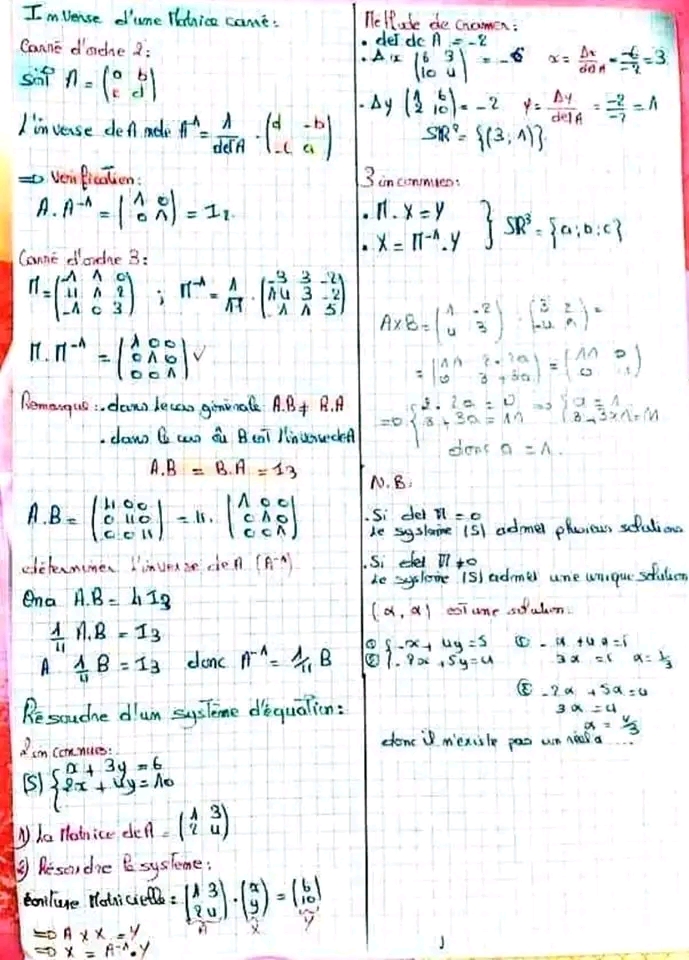 Inverse d'une Matrice carré:
Carré d'ordre 2:
Soit A = (a b
c d)
L'inverse de A note A⁻¹ = 1/detA . (d -b
-c a)
=> Verification:
A.A⁻¹ = (1 0
0 1) = I₂
Carré d'ordre 3:
M = (-1 1 0
4 1 2
-1 0 3) ; M⁻¹ = . (-3 3 -2
14 3 -2
1 1 5)
M.M⁻¹ = (1 0 0
0 1 0
0 0 1) ✓
Remarque: . dans le cas générale A.B ≠ B.A
. dans le cas où B est l'inverse de A
A.B = B.A = I3
A.B = (4 0 0
0 4 0
0 0 4) = 4. (1 0 0
0 1 0
0 0 1)
déterminer l'inverse de A (A⁻¹)
Ona A.B = 4 I3
1/4 A.B = I3
A 1/4 B = I3 donc A⁻¹ = 1/4 B
Résoudre d'un système d'équation:
2 inconnues:
(S) { x + 3y = 6
2x + 4y = 10
1) La Matrice de A = (1 3
2 4)
2) Résoudre le système:
écriture Matricielle = (1 3
2 4) . (x
y) = (6
10)
A X Y
=> A x X = Y
=> X = A⁻¹.Y
Methode de cramer:
. det de A = -2
. Δx (6 3
10 4) = -6 x = Δx/detA = -6/-2 = 3
. Δy (1 6
2 10) = -2 y = Δy/detA = -2/-2 = 1
SIR² = {(3, 1)}
3 inconnues:
. M.X = Y
. X = M⁻¹.Y } SIR³ = {a; b; c}
AxB = (1 -2
4 3) . (3 2
-4 a) =
= (11 2-2a
0 8+3a) = (11 0
0 11)
=> { 2-2a = 0
8+3a = 11 => { a = 1
8+3x1 = 11
donc a = 1.
N.B:
. Si det M = 0
Le système (S) admet plusieurs solutions
. Si det M ≠ 0
Le système (S) admet une unique solution
(α, α) est une solution.
① { -x + 4y = 5 ① -α + 4α = 5
② { -2x + 5y = 4 3α = 5 α = 5/3
② -2α + 5α = 4
3α = 4
α = 4/3
donc il n'existe pas un réel α ....